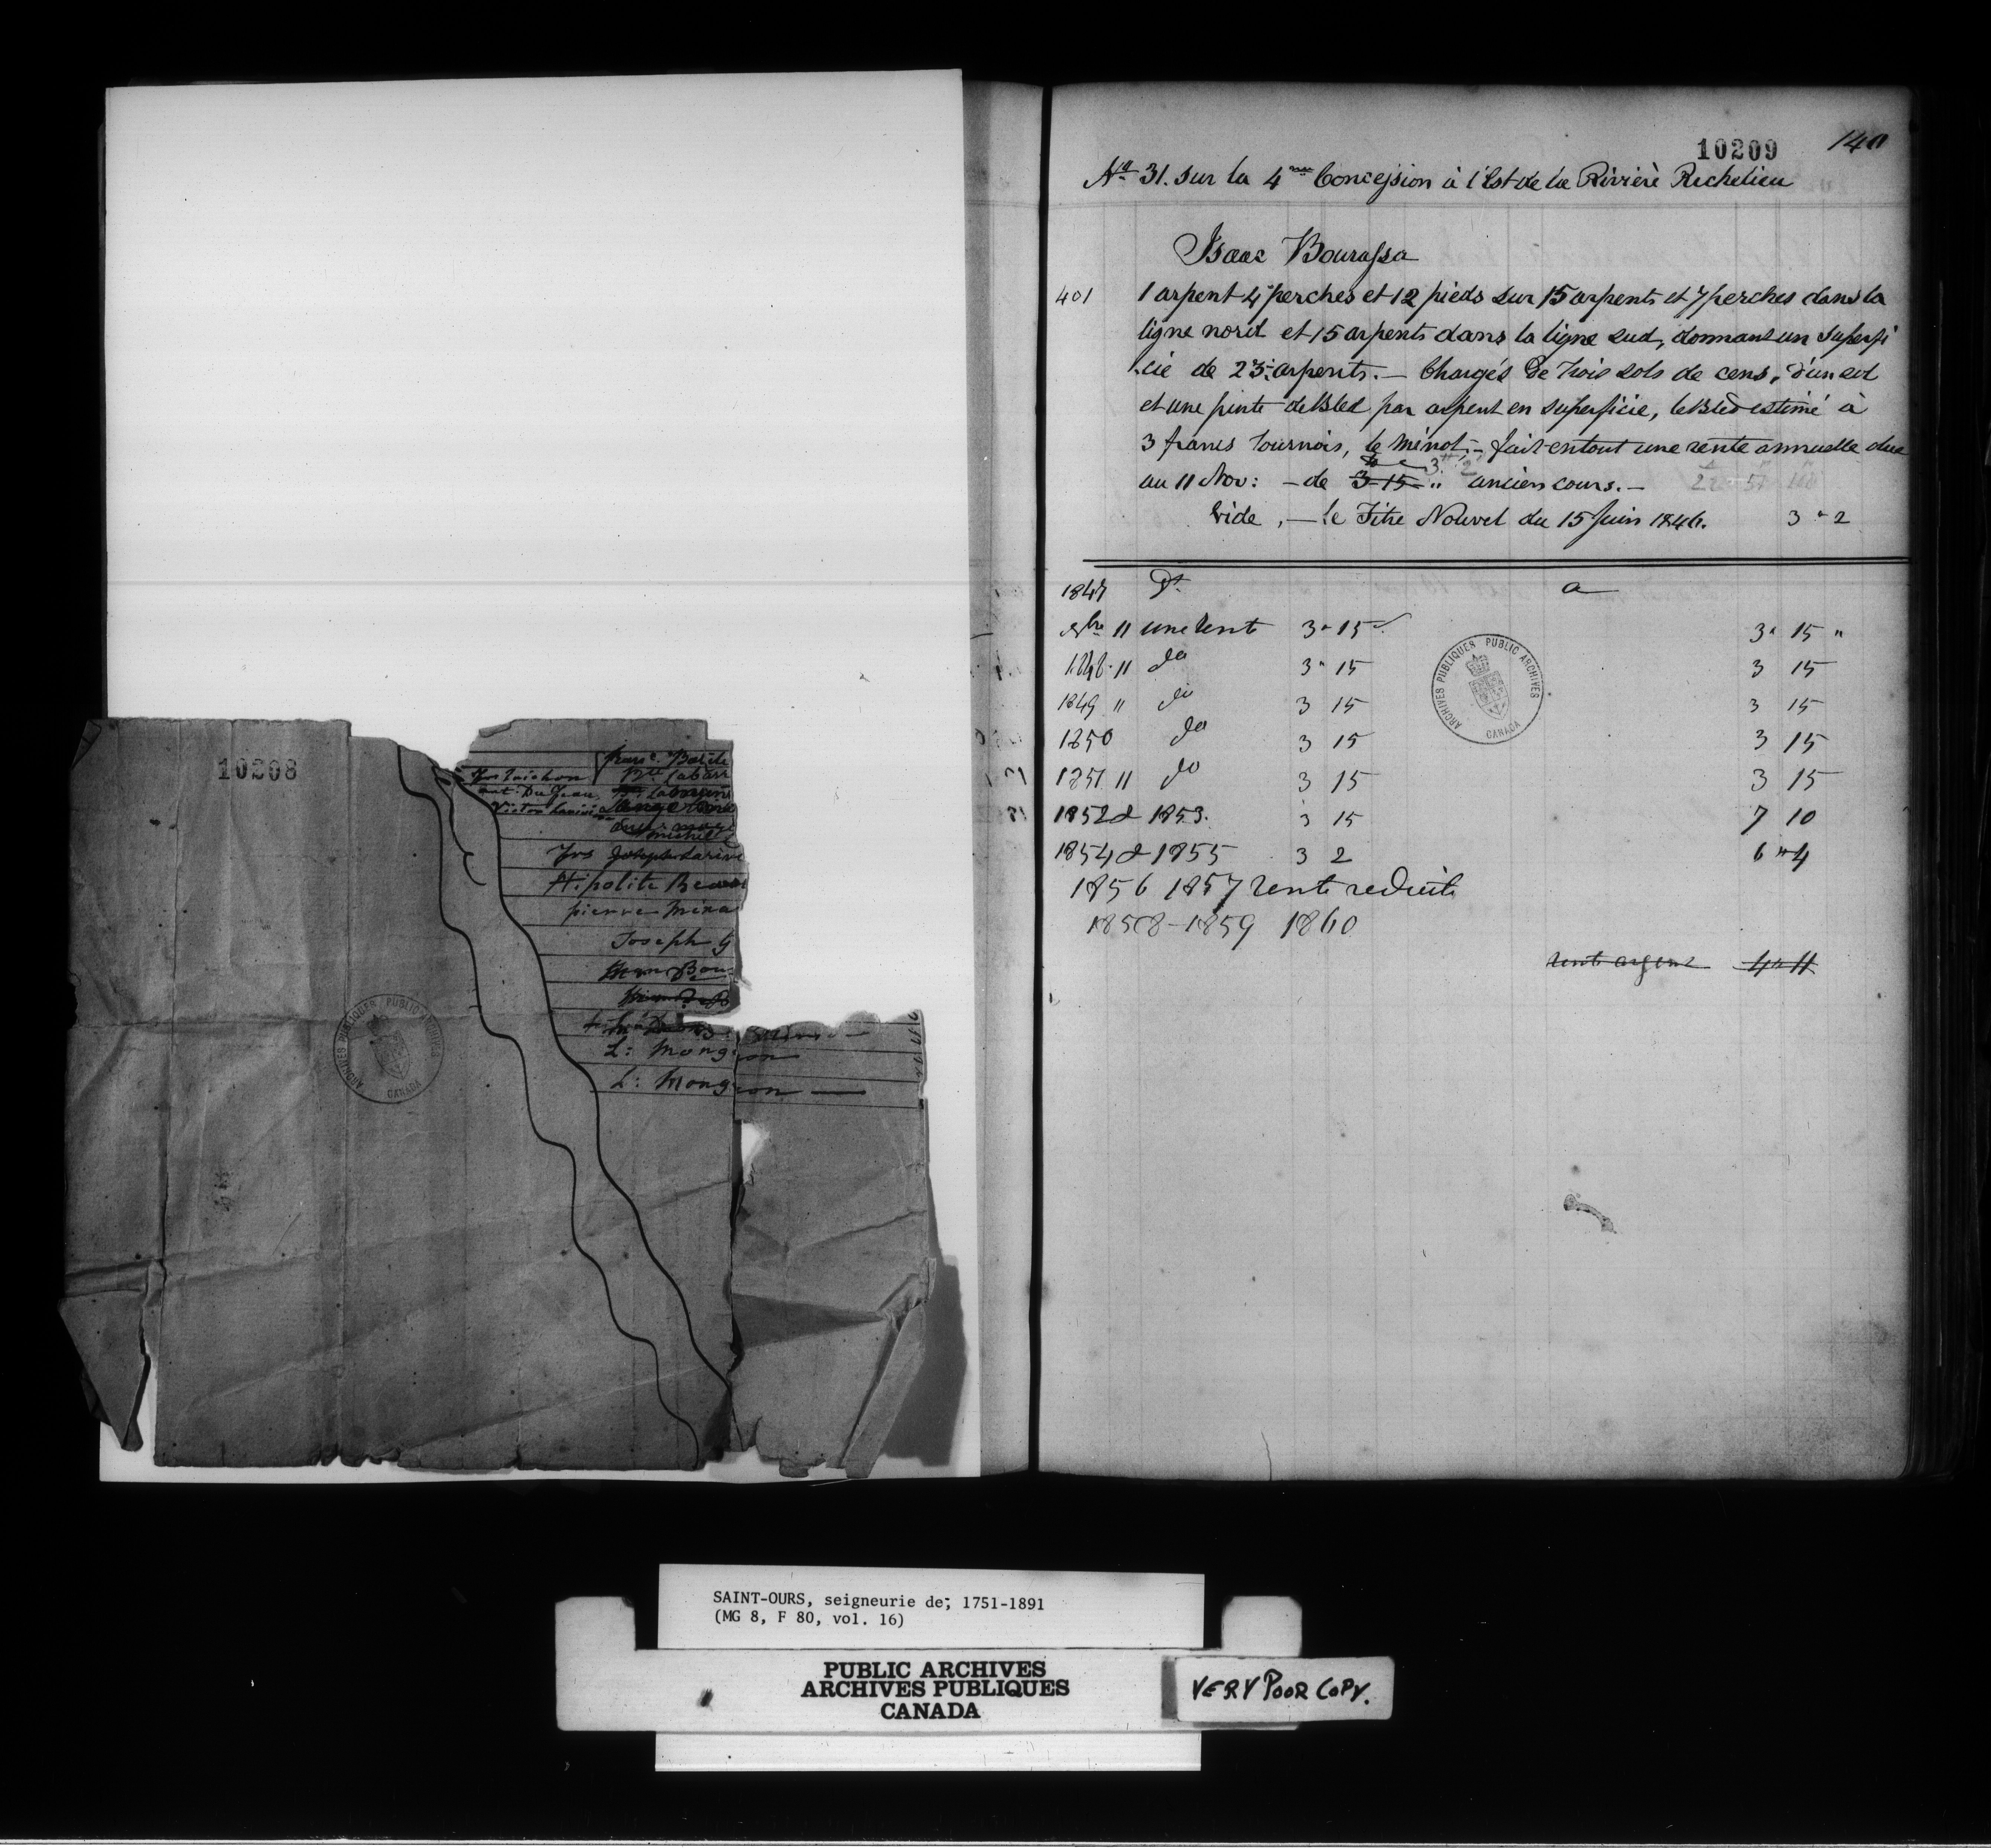 10208
Hipolite
pierre
Joseph G
L: Mongeon
L: Mongeon
ARCHIVES PUBLIQUES PUBLIC ARCHIVES CANADA
10209 140
No 31. sur la 4me Concession à l'Est de la Rivière Richelieu
Isaac Bourassa
401 1 arpent 4 perches et 12 pieds sur 15 arpents et 7 perches dans la
ligne nord et 15 arpents dans la ligne sud, donnant un superfi
cie de 23 arpents. — Chargés de trois sols de cens, d'un sol
et une pinte de bled par arpent en superficie, le bled estimé à
3 francs tournois, le minot, — fait en tout une rente annuelle due
au 11 Nov: — de 3 15 " 3 " 2 ancien cours. —
Vide, — le Titre Nouvel du 15 Juin 1846. 3 " 2
1847 Dt a
9bre 11 une rente 3 " 15 3 " 15 "
1848 11 do 3 " 15 3 15
1849 " do 3 15 3 15
1850 do 3 15 3 15
1851 11 do 3 15 3 15
1852 & 1853. 3 15 7 10
1854 & 1855 3 2 6 " 4
1856 1857 rente reduite
1858 - 1859 1860
rente argent 4 " 11
ARCHIVES PUBLIQUES PUBLIC ARCHIVES CANADA
SAINT-OURS, seigneurie de; 1751-1891
(MG 8, F 80, vol. 16)
PUBLIC ARCHIVES
ARCHIVES PUBLIQUES
CANADA
VERY POOR COPY.